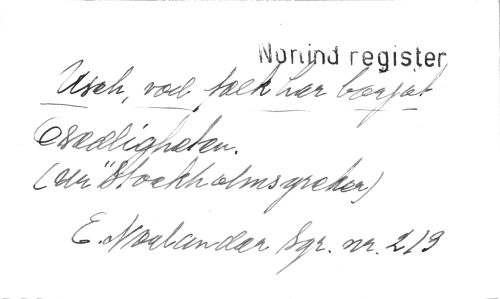 Norlind register
Usch, vad folk har börjat
Osedligheten.
(ur "Stockholmsgreker)
E. Norlander Sgr. nr. 219